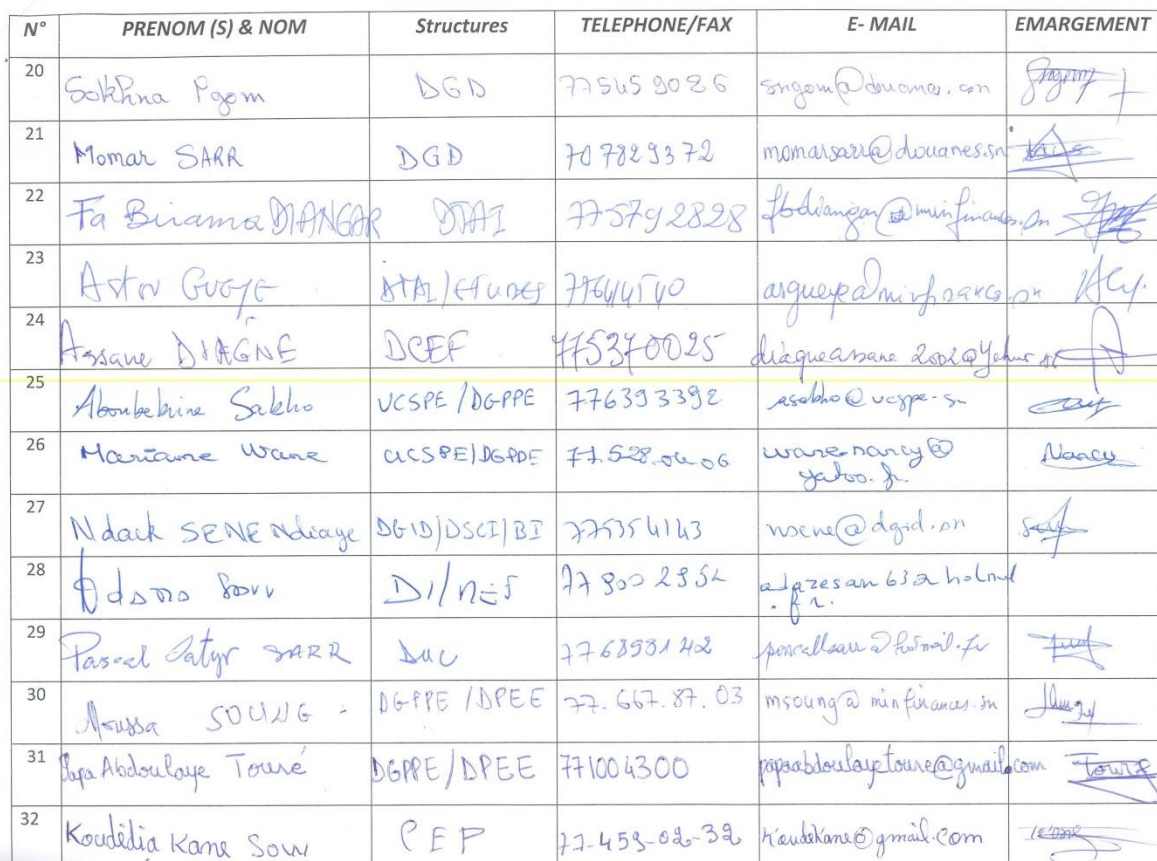 N° PRENOM (S) & NOM Structures TELEPHONE/FAX E- MAIL EMARGEMENT
20 Sokhna Ngom DGD 775459026 sngom@douanes.sn
21 Momar SARR DGD 707829372 momarsarr@douanes.sn
22 Fa Birama DIANGAR DTAI 775792828 fbdiangar@minfinances.sn
23 Astou GUEYE DTAI/ETUDES
24 Assane DIAGNE DCEF 775370025
25 Aboubekrine Sakho UCSPE/DGPPE 776393392 asakho@ucspe-sn
26 Mariame Wane UCSPE/DGPPE 77.528.04.06 wanenancy@ Nancy
yahoo.fr.
27 Ndack SENE Ndiaye DGID/DSCI/BI 775354143 nsene@dgid.sn
28 Sow
29 Pascal SARR 776893142
30 Moussa SOUNG DGPPE /DPEE 77.667.87.03 msoung@minfinances.sn
31 Papa Abdoulaye Touré DGPPE/DPEE 771004300 papaabdoulayetoure@gmail.com Touré
32 Koudédia Kane Sow CEP 77-459-02-32 koudekane@gmail.com